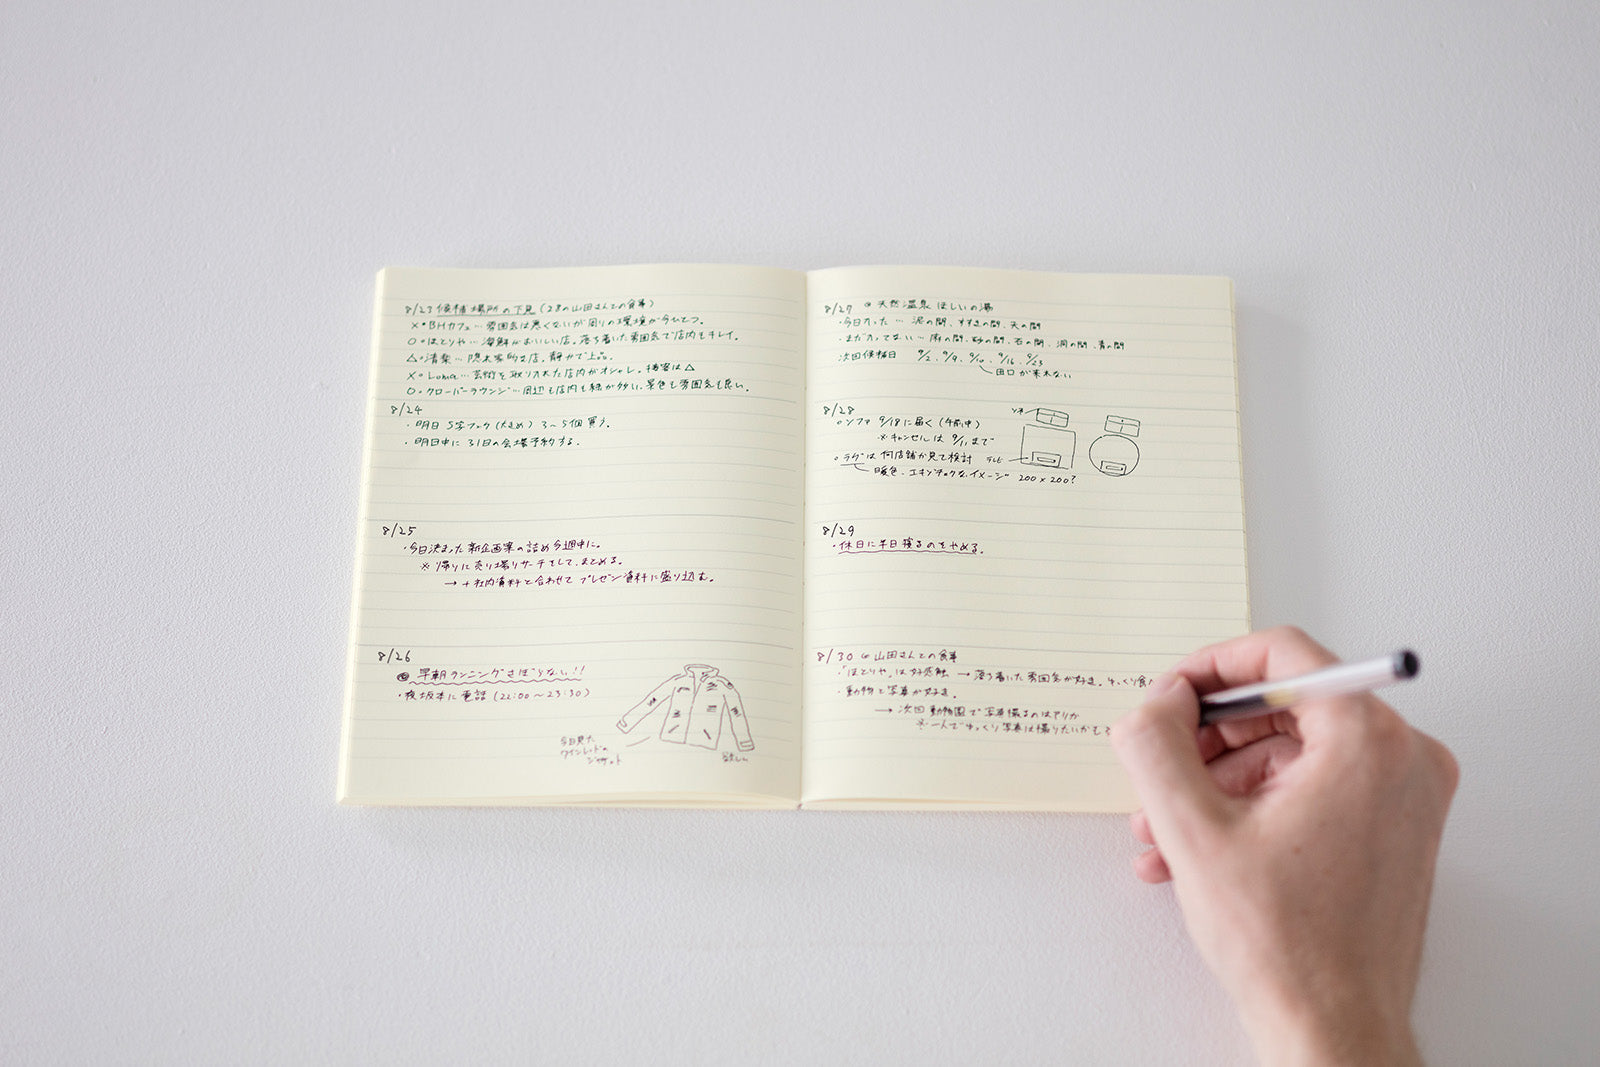 8/23 候補場所の下見 (28の山田さんとの食事)
×・BHカフェ…雰囲気は悪くないが周りの環境が今ひとつ。
○・ほとりや…海鮮がおいしい店。落ち着いた雰囲気で店内もキレイ。
△・清楽…隠れ家的な店。静かで上品。
×・Loma…芸術を取り入れた店内がオシャレ。接客は△
○・クローバーラウンジ…周辺も店内も緑が多い。景色も雰囲気も良い。
8/24
・明日 S字フック(大きめ) 3〜5個買う。
・明日中に 31日の会場予約する。
8/25
・今日決まった新企画案の詰め今週中に。
※帰りに売り場リサーチをして、まとめる。
→+社内資料と合わせて プレゼン資料に盛り込む。
8/26
早朝ランニングさぼらない!!
・夜坂本に電話 (22:00〜23:30)
今日見た
ワインレッドの
ジャケット
欲しい
8/27 天然温泉 ほしいの湯
・今日入った… 泥の間、すずきの間、天の間
・まだ入ってない… 雨の間、砂の間、石の間、洞の間、青の間
次回候補日 9/2、9/9、9/10、9/16、9/23
田口が来れない
8/28
○ソファ 9/18に届く (午前中)
※キャンセルは 9/11まで
○ラグは 何店舗か見て検討
暖色、エキゾチックなイメージ 200×200?
ソファ
テレビ
8/29
・休日に半日寝るのをやめる。
8/30 山田さんとの食事
・「ほとりや」は好感触 → 落ち着いた雰囲気が好き。ゆっくり食べ
・動物と写真が好き。
→ 次回動物園で写真撮るのはアリか
※一人でゆっくり写真は撮りたいかも